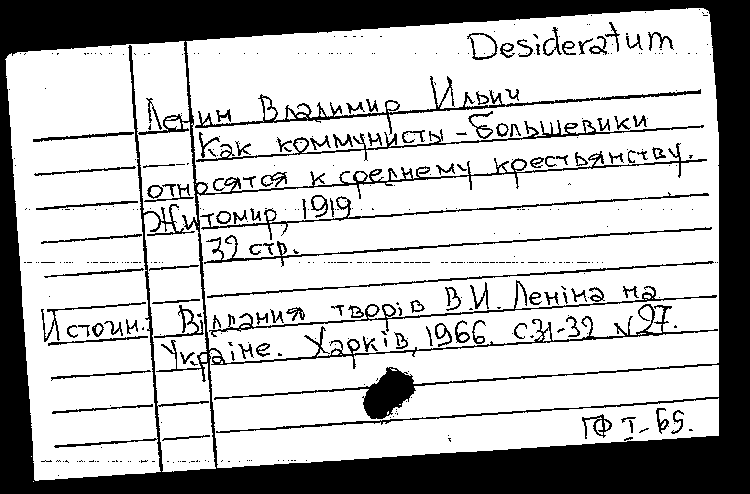 Desideratum
Ленин Владимир Ильич
Как коммунисты - большевики
относятся к среднему крестьянству.
Житомир, 1919
32 стр.
Источн.: Віддання творів В.И. Леніна на
Україне. Харків, 1966. с.31-32 N27.
ГФ I-65.